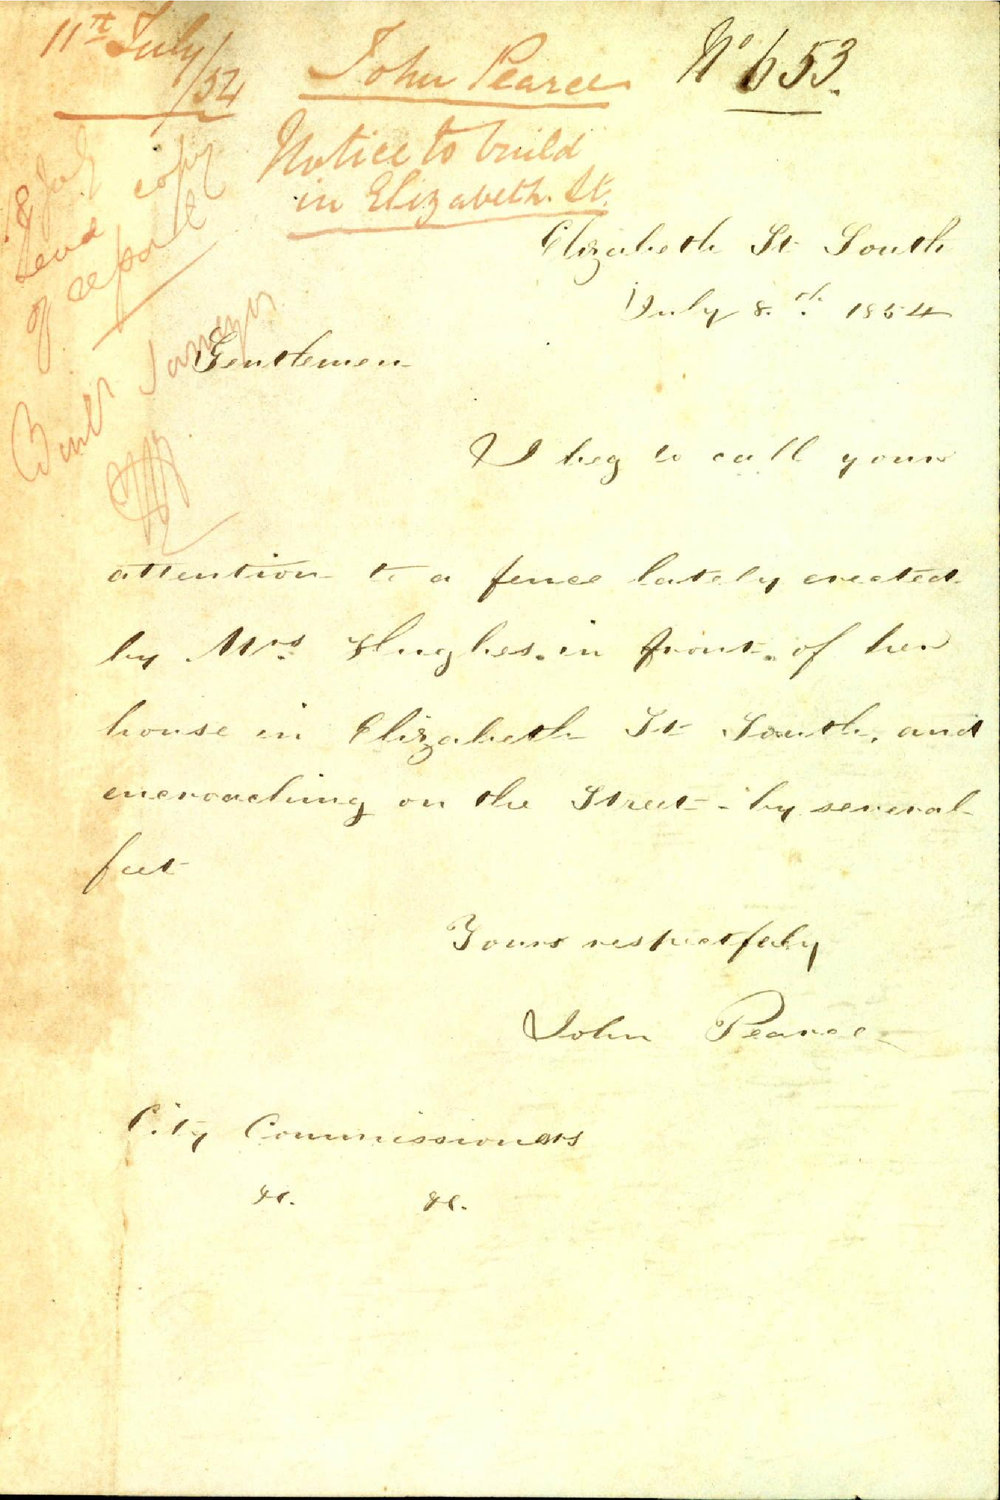 11th July/54
John Pearce
No 653.
Notice to build
in Elizabeth St.
18 July
Send copy
of report
Elizabeth St South
July 8.th 1854
Gentlemen
I beg to call your
attention to a fence lately erected
by Mrs. Hughes. in front. of her
house in Elizabeth St South, and
encroaching on the Street - by several
feet
Yours respectfuly
John Pearce
City Commissioners
&c. &c.